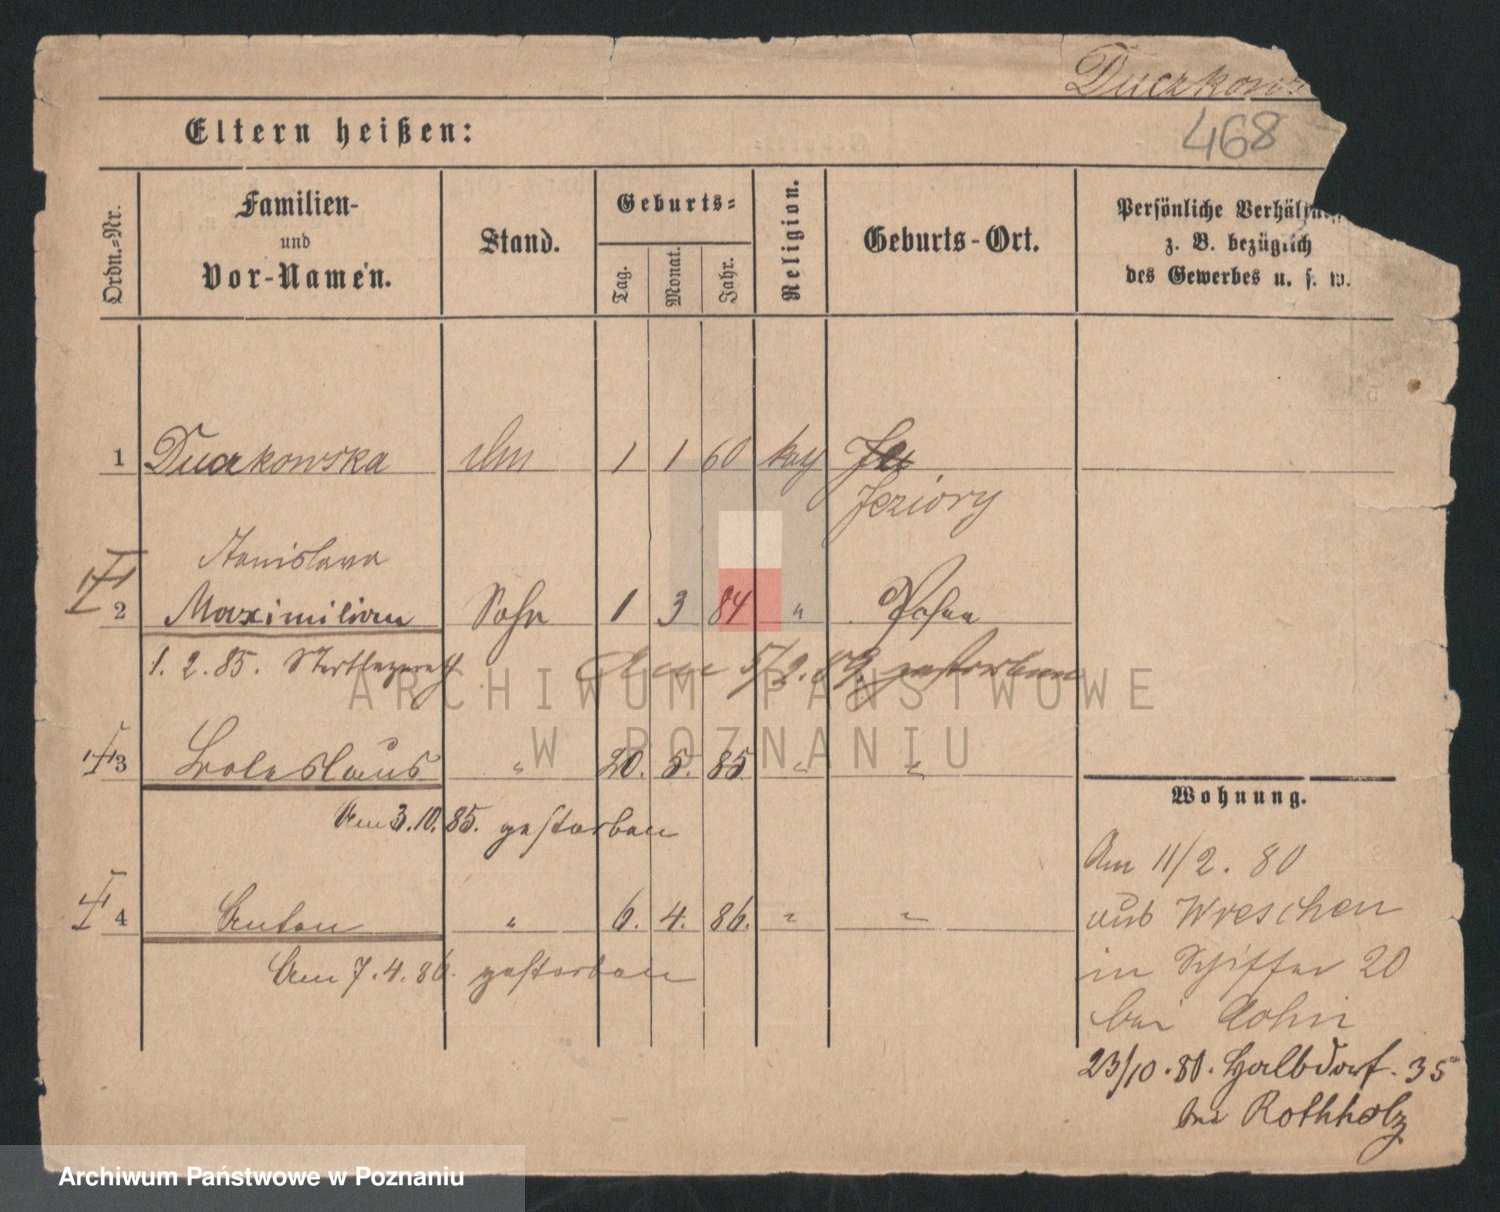 Duczkows
468
Eltern heißen:
Ordn.-Nr.
Familien-
und
Vor-Namen.
Stand.
Geburts-
Tag.
Monat.
Jahr.
Religion.
Geburts-Ort.
Persönliche Verhältn
z. B. bezüglich
des Gewerbes u. s. w.
1 Duczkowska 1 1 60 kath Je
Jeziory
Stanislava
2 Maximilian Sohn 1 3 84 " Posen
1. 2. 85. Stadtlazareth Am 5/2. 89. gestorben
3 Boleslaus " 20. 5. 85. " "
Am 3. 10. 85. gestorben
4 Anton " 6. 4. 86. " "
Am 7. 4. 86. gestorben
Wohnung.
Am 11/2. 80
aus Wreschen
in Schiffer 20
bei Cohn
23/10. 80. Halbdorf. 35
bei Rothholz
ARCHIWUM PAŃSTWOWE
W POZNANIU
Archiwum Państwowe w Poznaniu